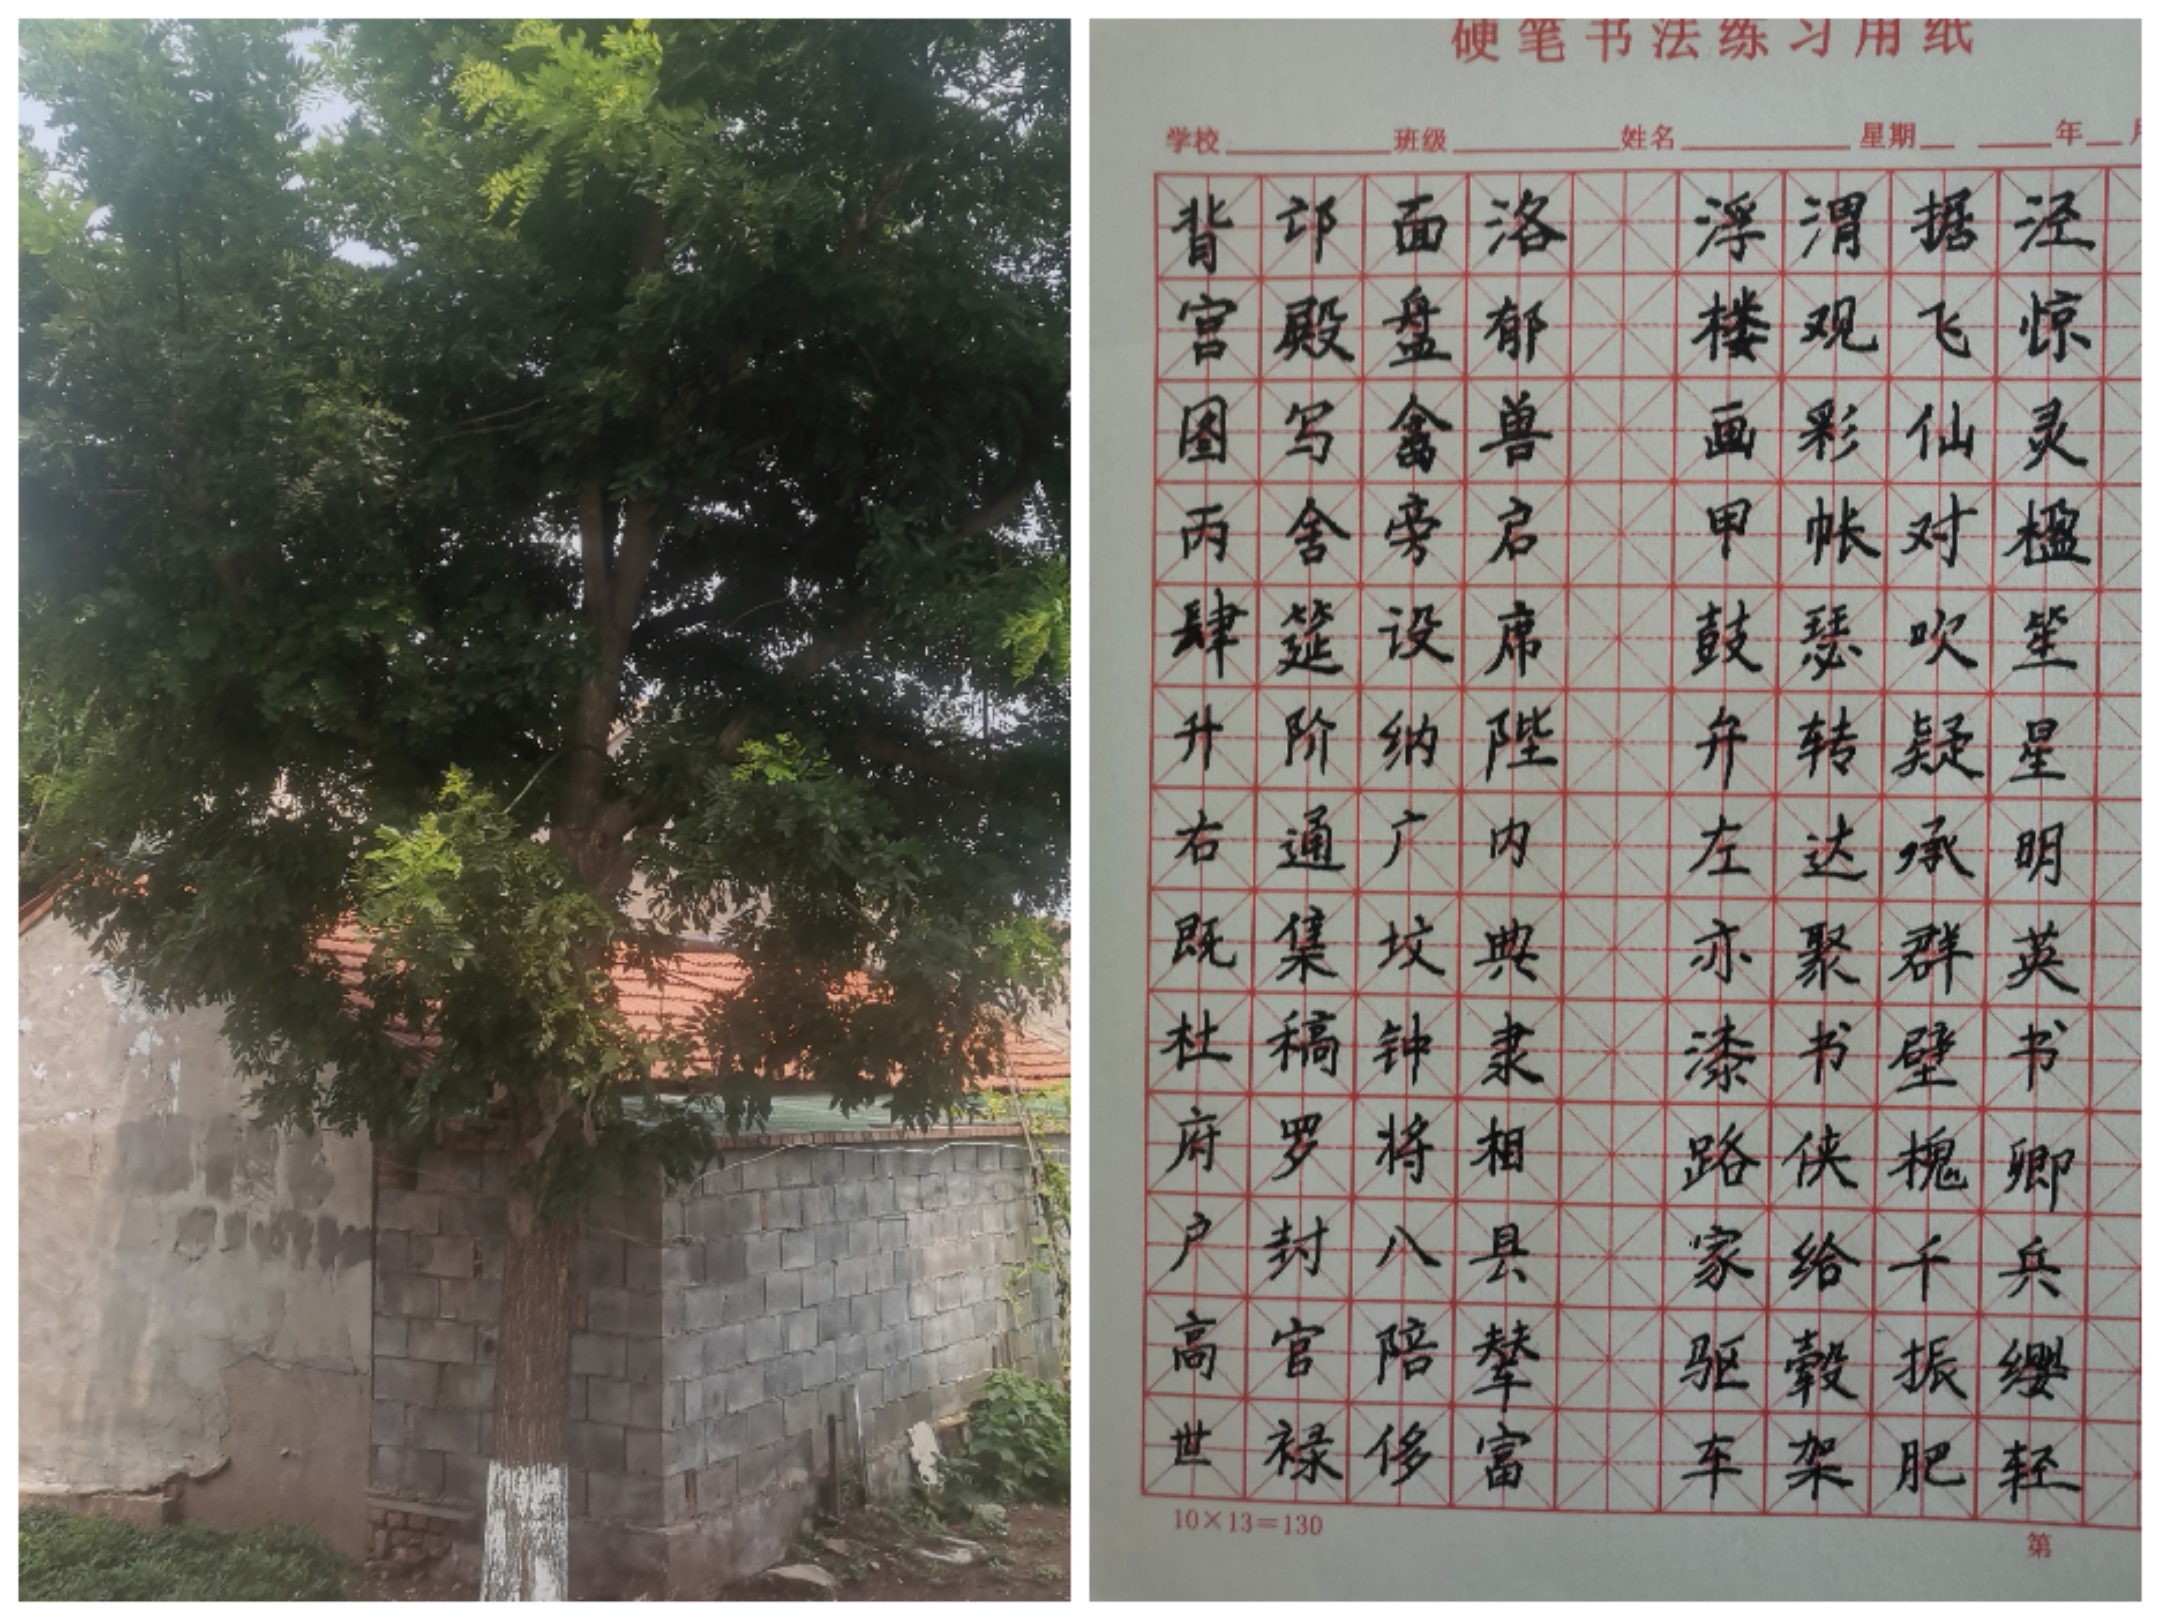 硬笔书法练习用纸
学校 班级 姓名 星期 年
背邙面洛 浮渭据泾
宫殿盘郁 楼观飞惊
图写禽兽 画彩仙灵
丙舍旁启 甲帐对楹
肆筵设席 鼓瑟吹笙
升阶纳陛 弁转疑星
右通广内 左达承明
既集坟典 亦聚群英
杜稿钟隶 漆书壁书
府罗将相 路侠槐卿
户封八县 家给千兵
高官陪辇 驱毂振缨
世禄侈富 车架肥轻
10×13=130
第